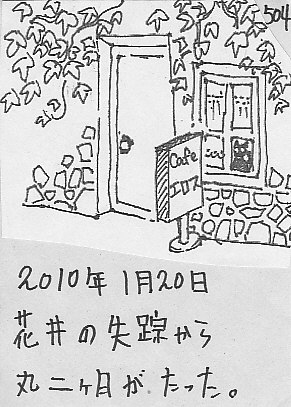 504
Cafe
エロス
2010年1月20日
花井の失踪から
丸二ヶ月がたった。